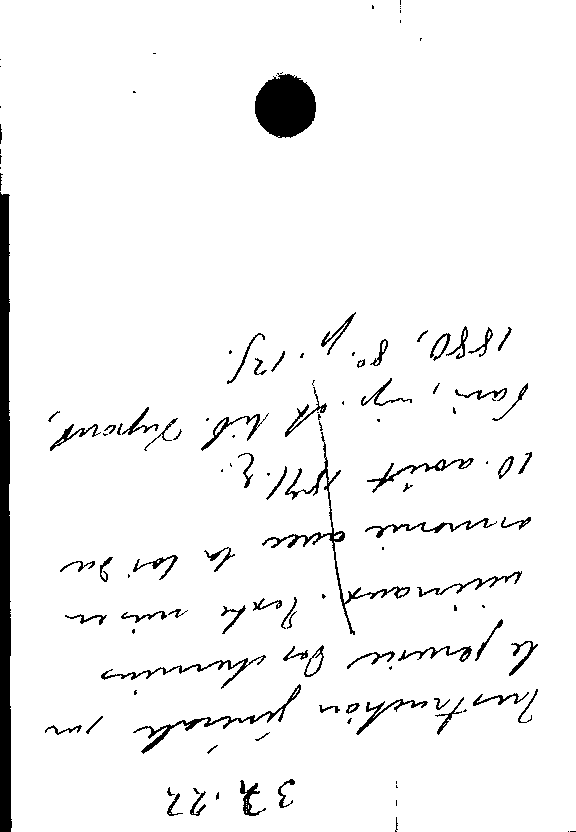 37.22
Instruction générale sur
le service des chemins
vicinaux. Texte mis en
armonie avec la loi du
10 août 1871.
Paris, imp. et lib. Dupont,
1880, 8°. p. 125.